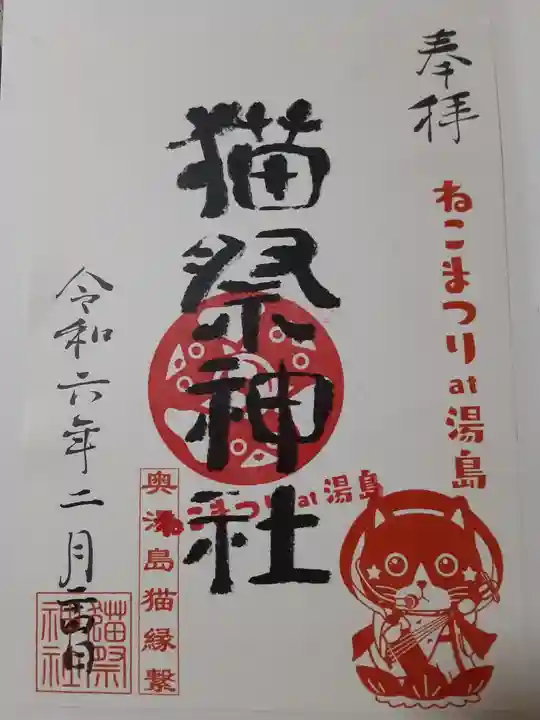 奉拝
ねこまつりat湯島
猫祭神社
ねこまつりat湯島
奥湯島猫縁繋
令和六年二月
猫祭
神社